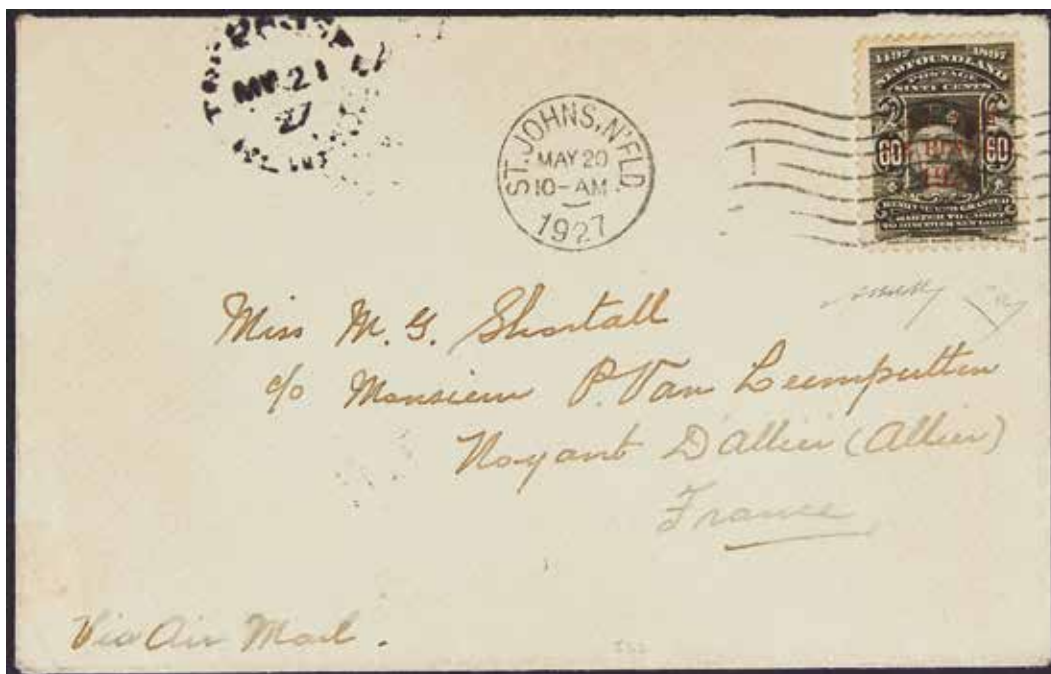 MY 21
27
ST. JOHNS, N'FLD.
MAY 20
10-AM
1927
1497 1897
NEWFOUNDLAND
POSTAGE
SIXTY CENTS
60 60
HENRY VII
TO DISCOVER NEW LANDS
Miss M. G. Shortall
c/o Monsieur P. Van Leemputten
Noyant D'Allier (Allier)
France
Via Air Mail.